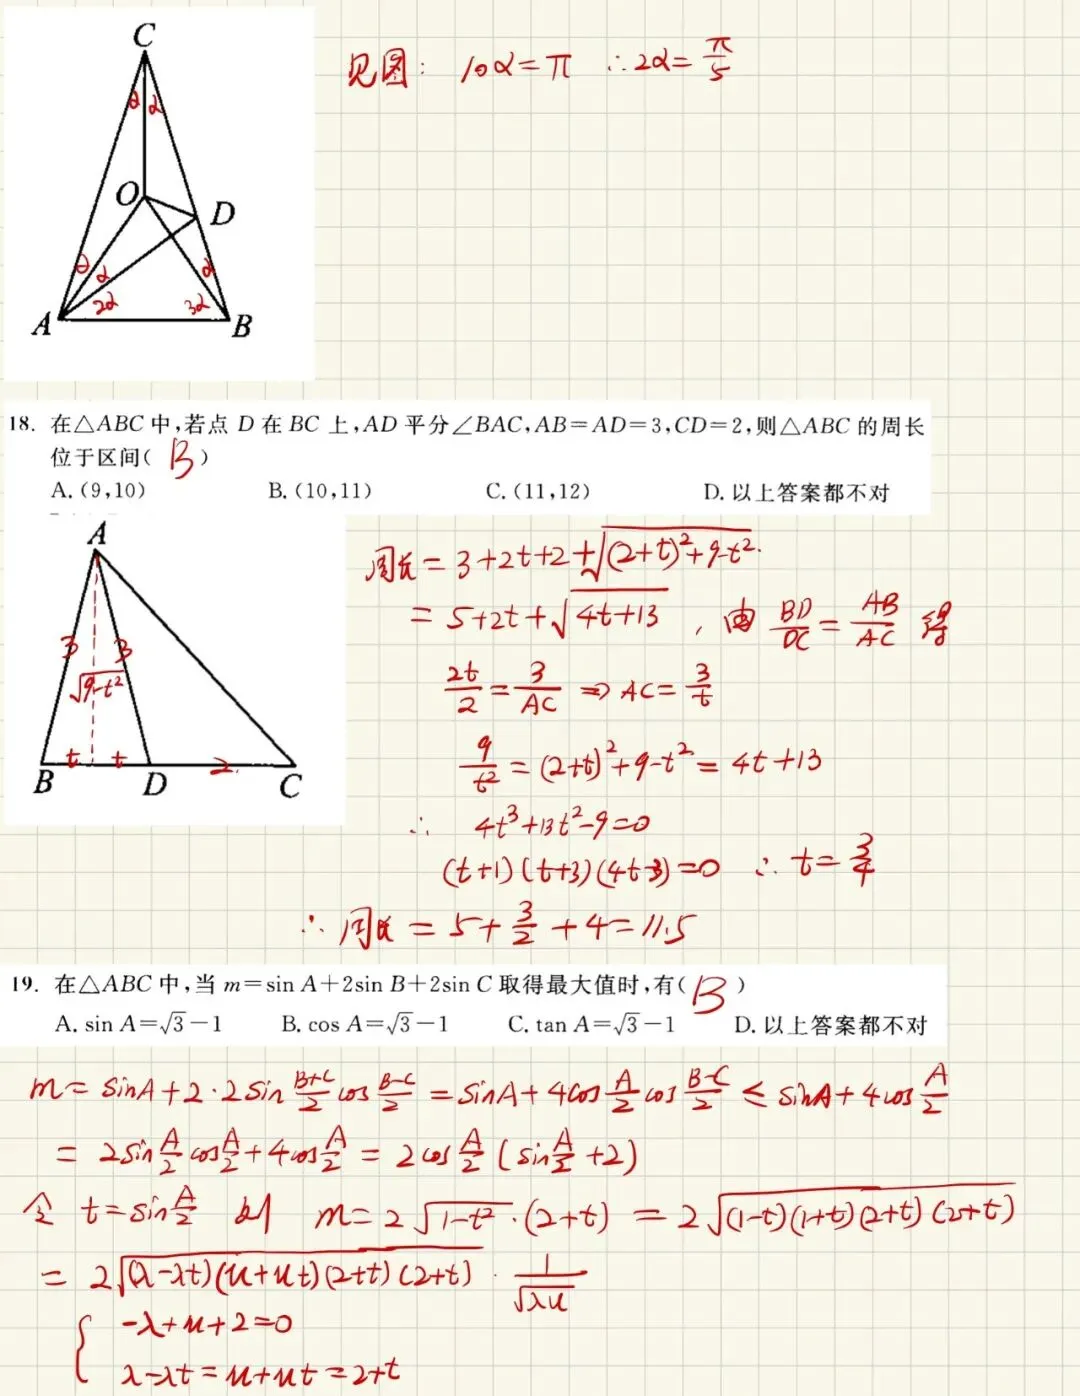 C
见图: 10α=π ∴2α=π/5
α α
O
D
α α α
2α 3α
A B
18. 在△ABC中,若点 D 在 BC 上,AD 平分∠BAC,AB=AD=3,CD=2,则△ABC 的周长
位于区间( B )
A. (9,10) B. (10,11) C. (11,12) D. 以上答案都不对
A
周长=3+2t+2+√((2+t)²+9-t²).
=5+2t+√(4t+13) , 由 BD/DC=AB/AC 得
3 3
√(9-t²)
2t/2=3/AC ⇒ AC=3/t
t t 2
B D C
9/t²=(2+t)²+9-t²=4t+13
∴ 4t³+13t²-9=0
(t+1)(t+3)(4t-3)=0 ∴ t=3/4
∴ 周长=5+3/2+4=11.5
19. 在△ABC中,当 m=sin A+2sin B+2sin C 取得最大值时,有( B )
A. sin A=√3-1 B. cos A=√3-1 C. tan A=√3-1 D. 以上答案都不对
m=sinA+2·2sin (B+C)/2 cos (B-C)/2=sinA+4cos A/2 cos (B-C)/2 ≤ sinA+4cos A/2
=2sin A/2 cos A/2+4cos A/2=2cos A/2 (sin A/2+2)
令 t=sin A/2 则 m=2√(1-t²)·(2+t)=2√((1-t)(1+t)(2+t)(2+t))
=2√((λ-λt)(u+ut)(2+t)(2+t))·1/√(λu)
{ -λ+u+2=0
λ-λt=u+ut=2+t